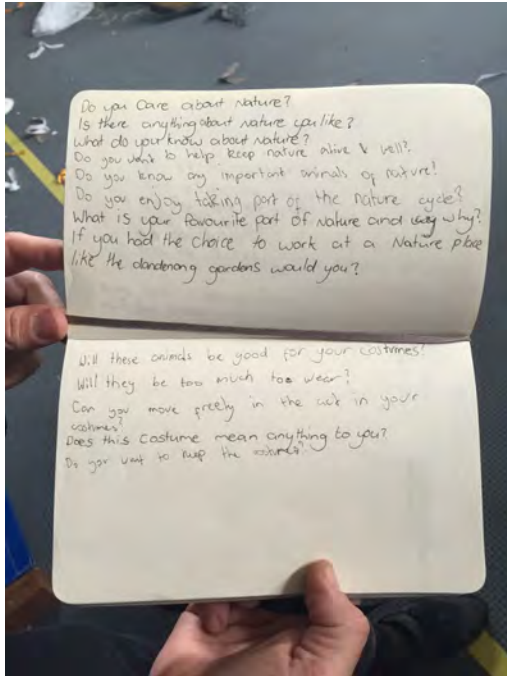 Do you Care about Nature?
Is there anything about nature you like?
What do you know about nature?
Do you want to help keep nature alive & well?
Do you know any important animals of nature?
Do you enjoy taking part of the nature cycle?
What is your favourite part of Nature and why?
If you had the choice to work at a Nature place
like the dandenong gardens would you?
Will these animals be good for your costumes?
Will they be too much too wear?
Can you move freely in the in your
costumes?
Does this Costume mean anything to you?
Do you want to keep the